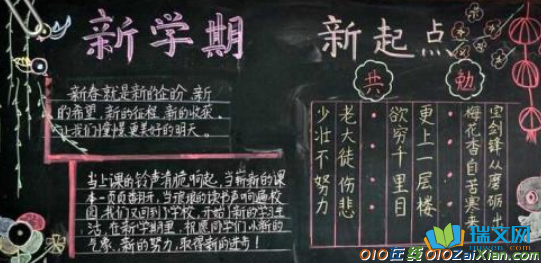 新学期 新起点
新春就是新的企盼,新
的希望,新的征程,新的收获。
让我们憧憬更美好的明天。
当上课的铃声清脆响起,当崭新的课
本一页页翻开,当琅琅的读书声响遍校
园,我们又回到了学校,开始了新的学习生
活,在新学期里,祝愿同学们以新的
气象、新的努力,取得新的进步!
共勉
少壮不努力
老大徒伤悲
欲穷千里目
更上一层楼
梅花香自苦寒来
宝剑锋从磨砺出
010在线 010ZaiXian.com
瑞文网